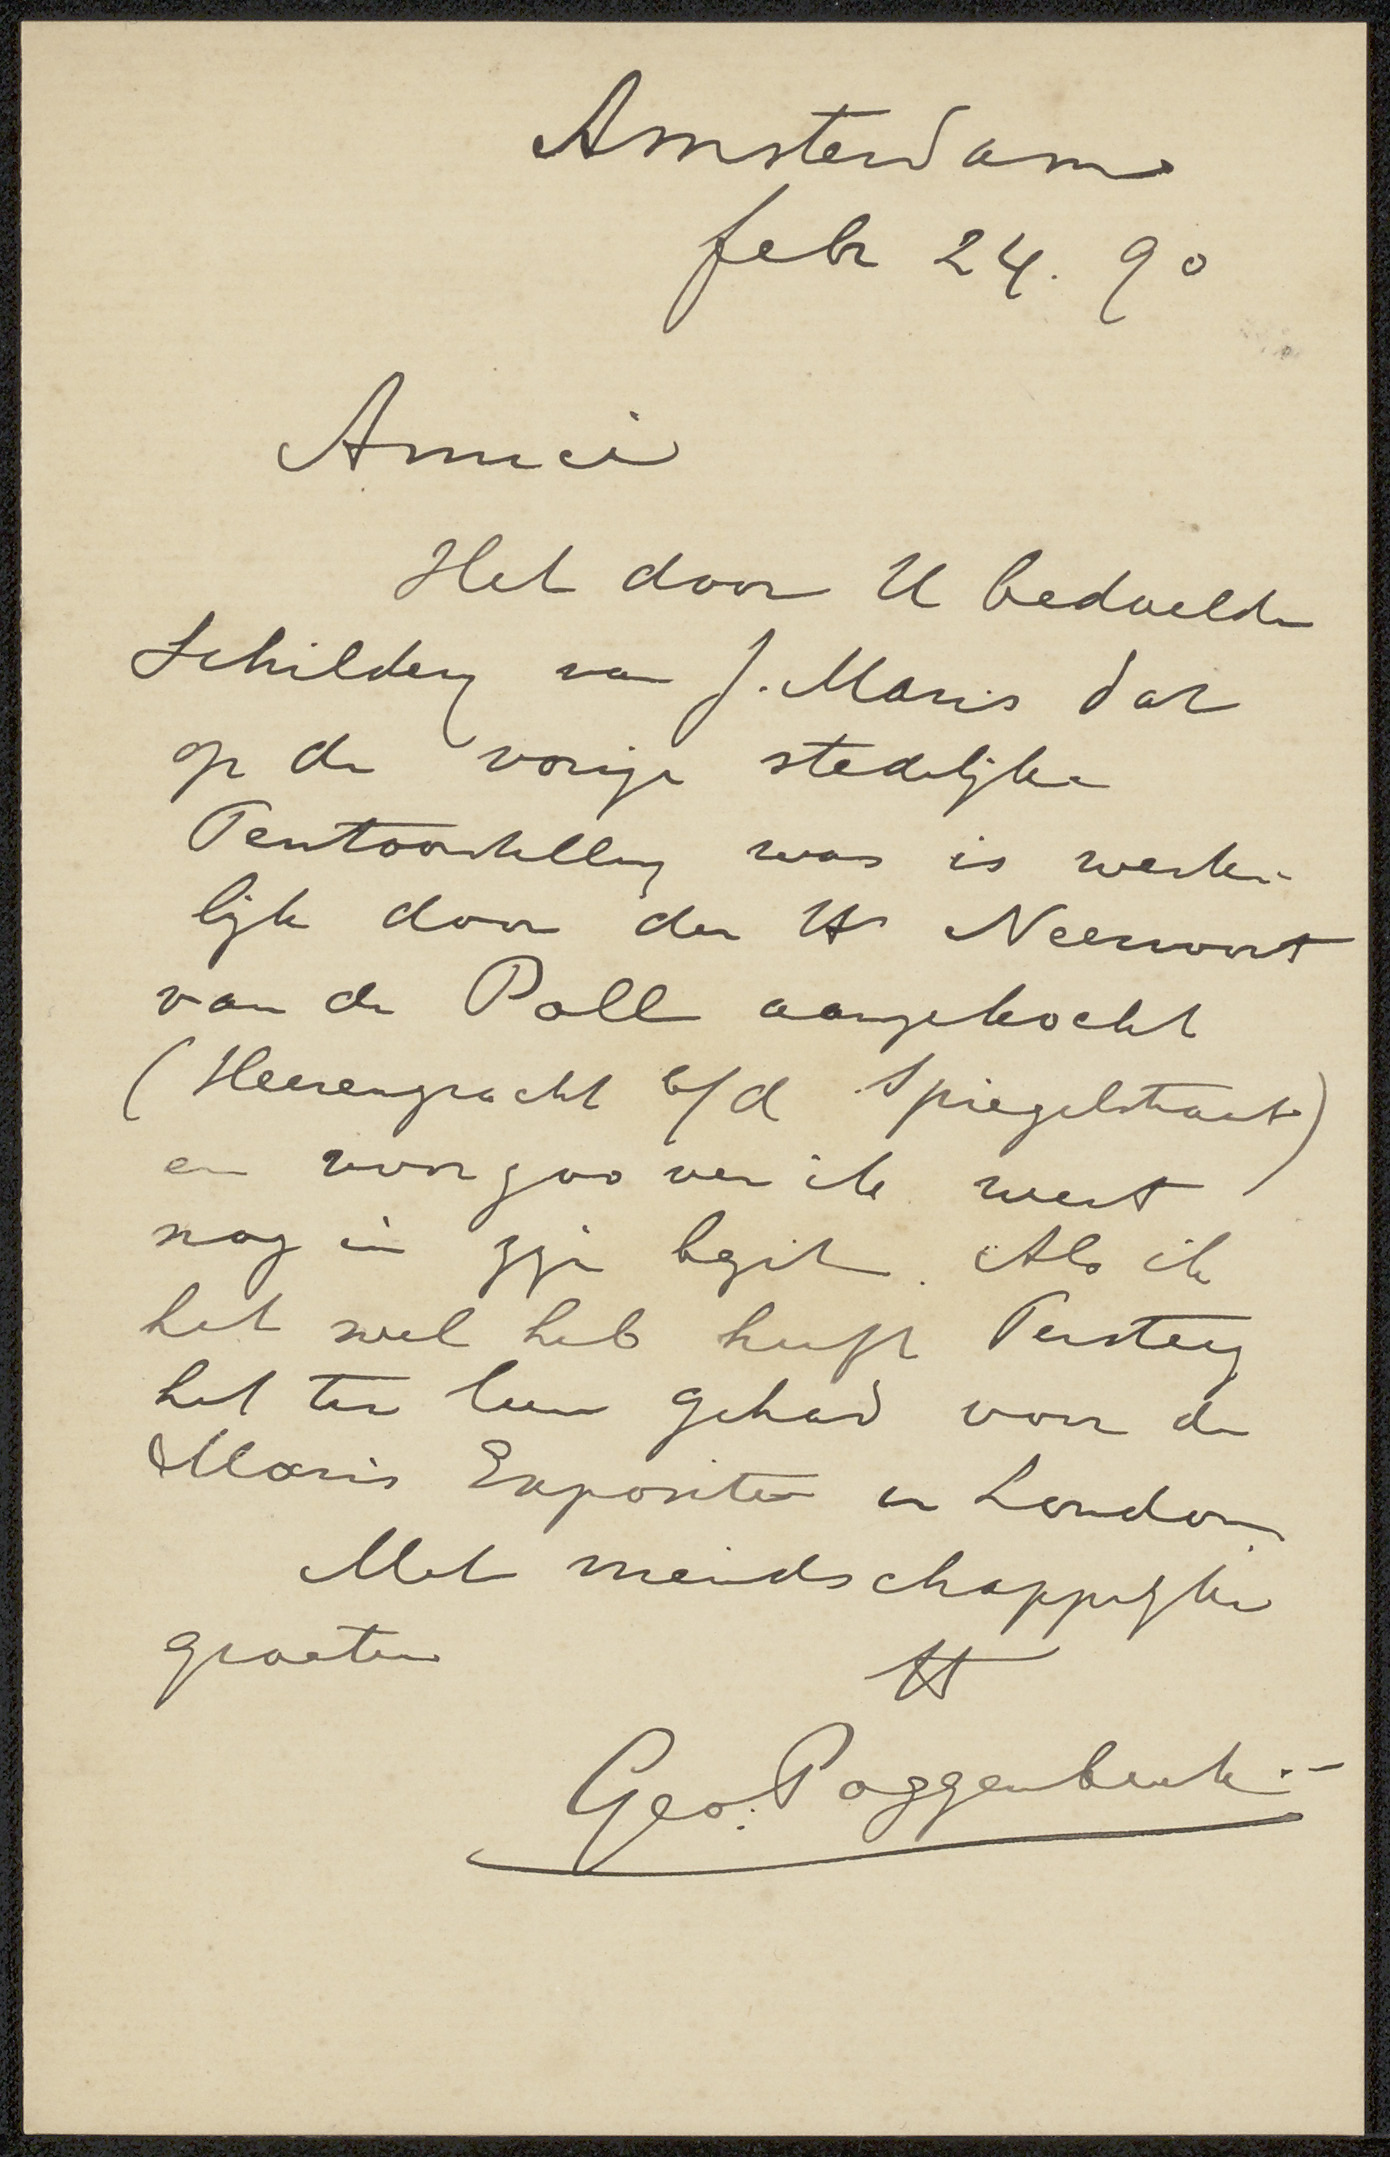 Amsterdam
febr 24. 90
Amice
Het door U bedoelde
Schildery van J. Maris dat
op de vorige stedelijke
Tentoonstelling was is werke-
lijk door den Hr Neervoort
van de Poll aangekocht
(Heerengracht b/d Spiegelstraat)
en voor zoo ver ik weet
nog in zijn bezit. Als ik
het wel heb heeft Tersteeg
het ter leen gehad voor de
Maris Expositie in London
Met vriendschappelijke
groeten
tt
Geo. Poggenbeek.-